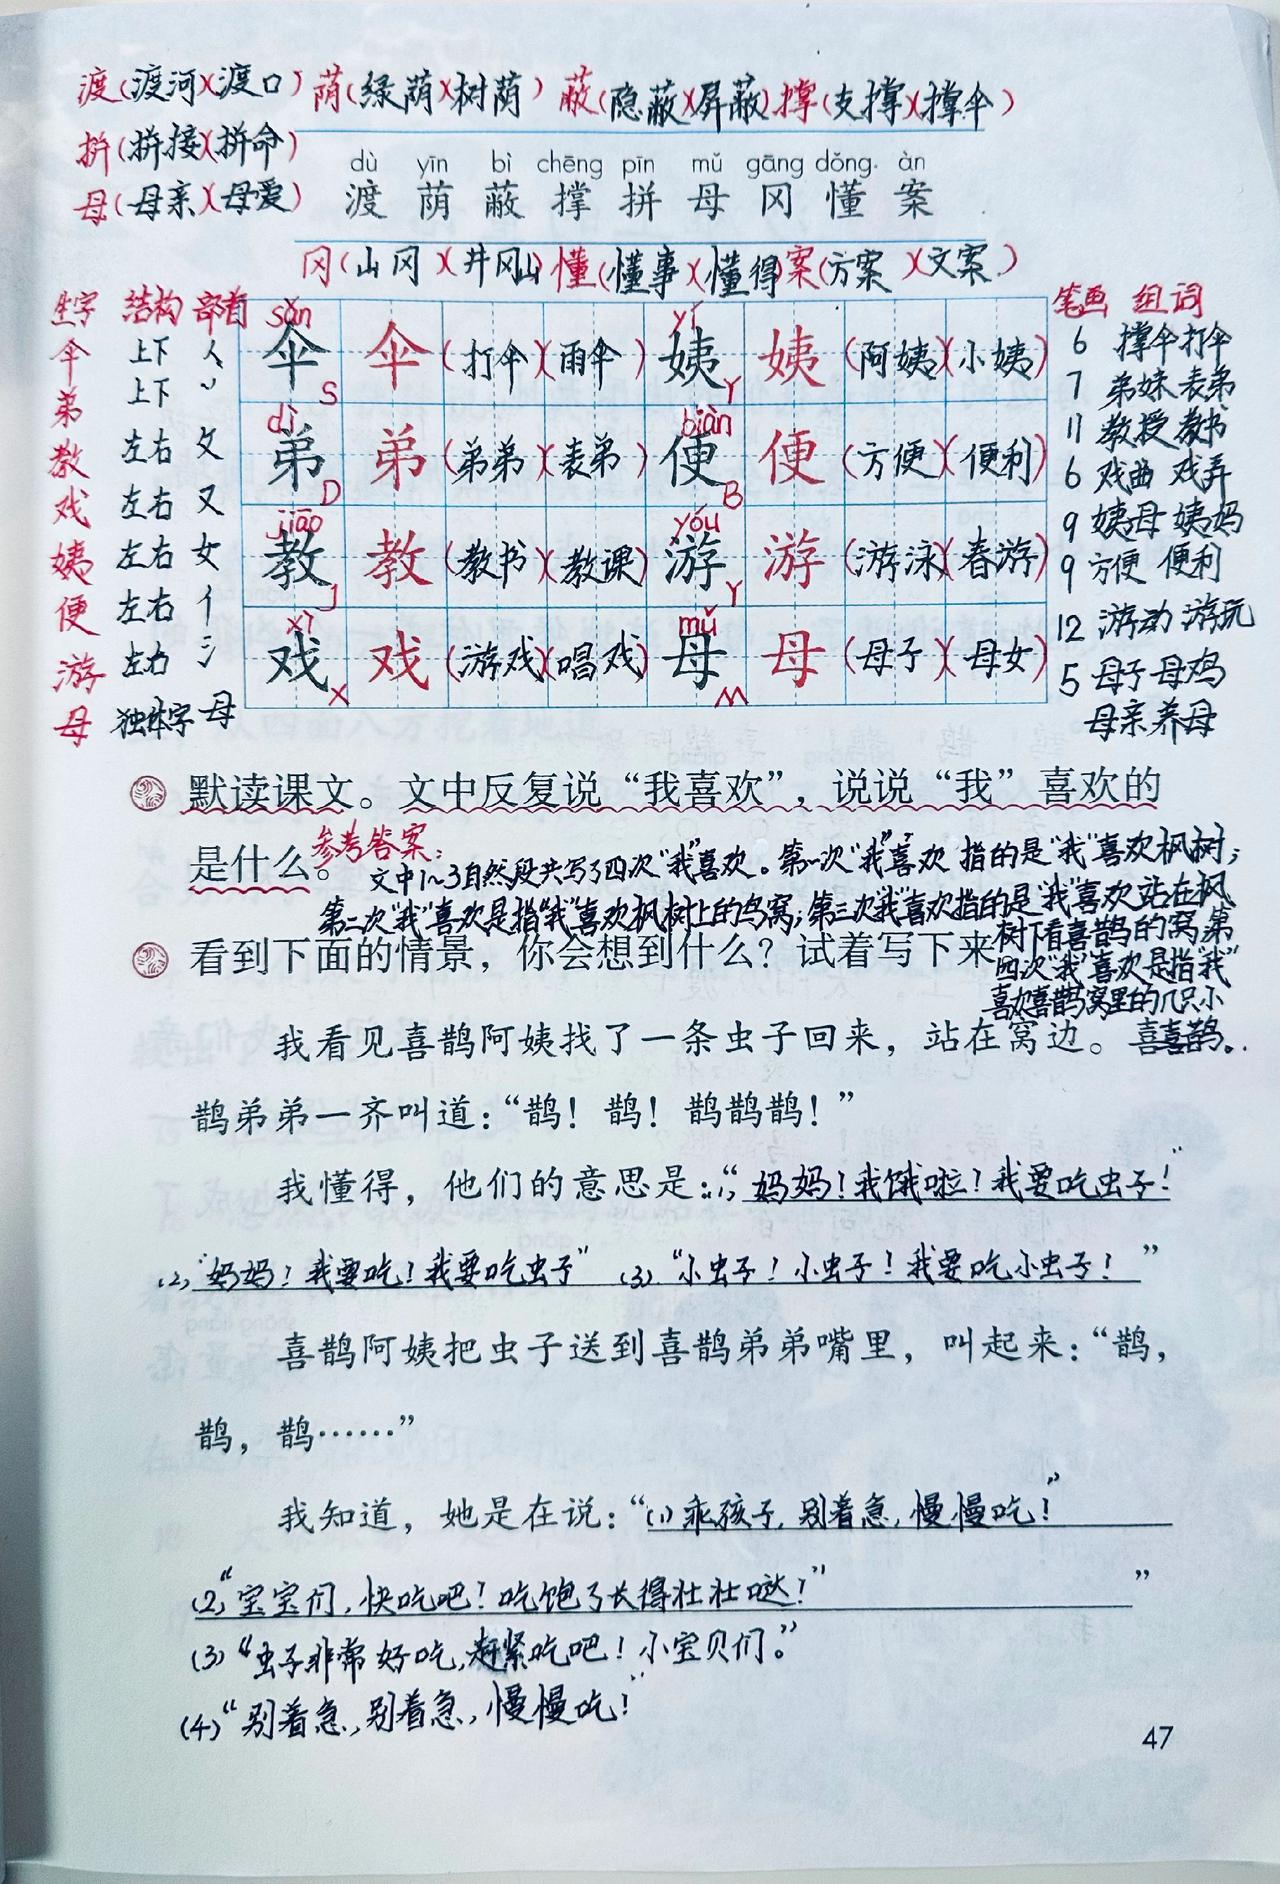 渡(渡河)(渡口) 荫(绿荫)(树荫) 蔽(隐蔽)(屏蔽) 撑(支撑)(撑伞)
拼(拼接)(拼命)
母(母亲)(母爱)
dù yīn bì chēng pīn mǔ gāng dǒng àn
渡 荫 蔽 撑 拼 母 冈 懂 案
冈(山冈)(井冈山) 懂(懂事)(懂得) 案(方案)(文案)
生字 结构 部首
伞 上下 人
弟 上下 丷
教 左右 攵
戏 左右 又
姨 左右 女
便 左右 亻
游 左右 氵
母 独体字 母
sǎn yí
伞 伞 (打伞)(雨伞) 姨 姨 (阿姨)(小姨)
S Y
dì biàn
弟 弟 (弟弟)(表弟) 便 便 (方便)(便利)
D B
jiāo yóu
教 教 (教书)(教课) 游 游 (游泳)(春游)
J Y
xì mǔ
戏 戏 (游戏)(唱戏) 母 母 (母子)(母女)
X M
笔画 组词
6 撑伞 打伞
7 弟妹 表弟
11 教授 教书
6 戏曲 戏弄
9 姨母 姨妈
9 方便 便利
12 游动 游玩
5 母子 母鸡
母亲 养母
默读课文。文中反复说“我喜欢”，说说“我”喜欢的
是什么。
参考答案：
文中1~3自然段共写了四次“我”喜欢。第一次“我”喜欢 指的是“我”喜欢枫树；
第二次“我”喜欢是指“我”喜欢枫树上的鸟窝；第三次“我”喜欢指的是“我”喜欢站在枫
树下看喜鹊的窝，第
四次“我”喜欢是指“我”
喜欢喜鹊窝里的几只小
喜喜鹊。
看到下面的情景，你会想到什么？试着写下来
我看见喜鹊阿姨找了一条虫子回来，站在窝边。
鹊弟弟一齐叫道：“鹊！鹊！鹊鹊鹊！”
我懂得，他们的意思是：“(1)妈妈！我饿啦！我要吃虫子！”
(2)“妈妈！我要吃！我要吃虫子” (3)“小虫子！小虫子！我要吃小虫子！”
喜鹊阿姨把虫子送到喜鹊弟弟嘴里，叫起来：“鹊，
鹊，鹊……”
我知道，她是在说：“(1)乖孩子，别着急，慢慢吃！”
(2)“宝宝们，快吃吧！吃饱了长得壮壮哒！” ”
(3)“虫子非常好吃，赶紧吃吧！小宝贝们。”
(4)“别着急，别着急，慢慢吃！”
47